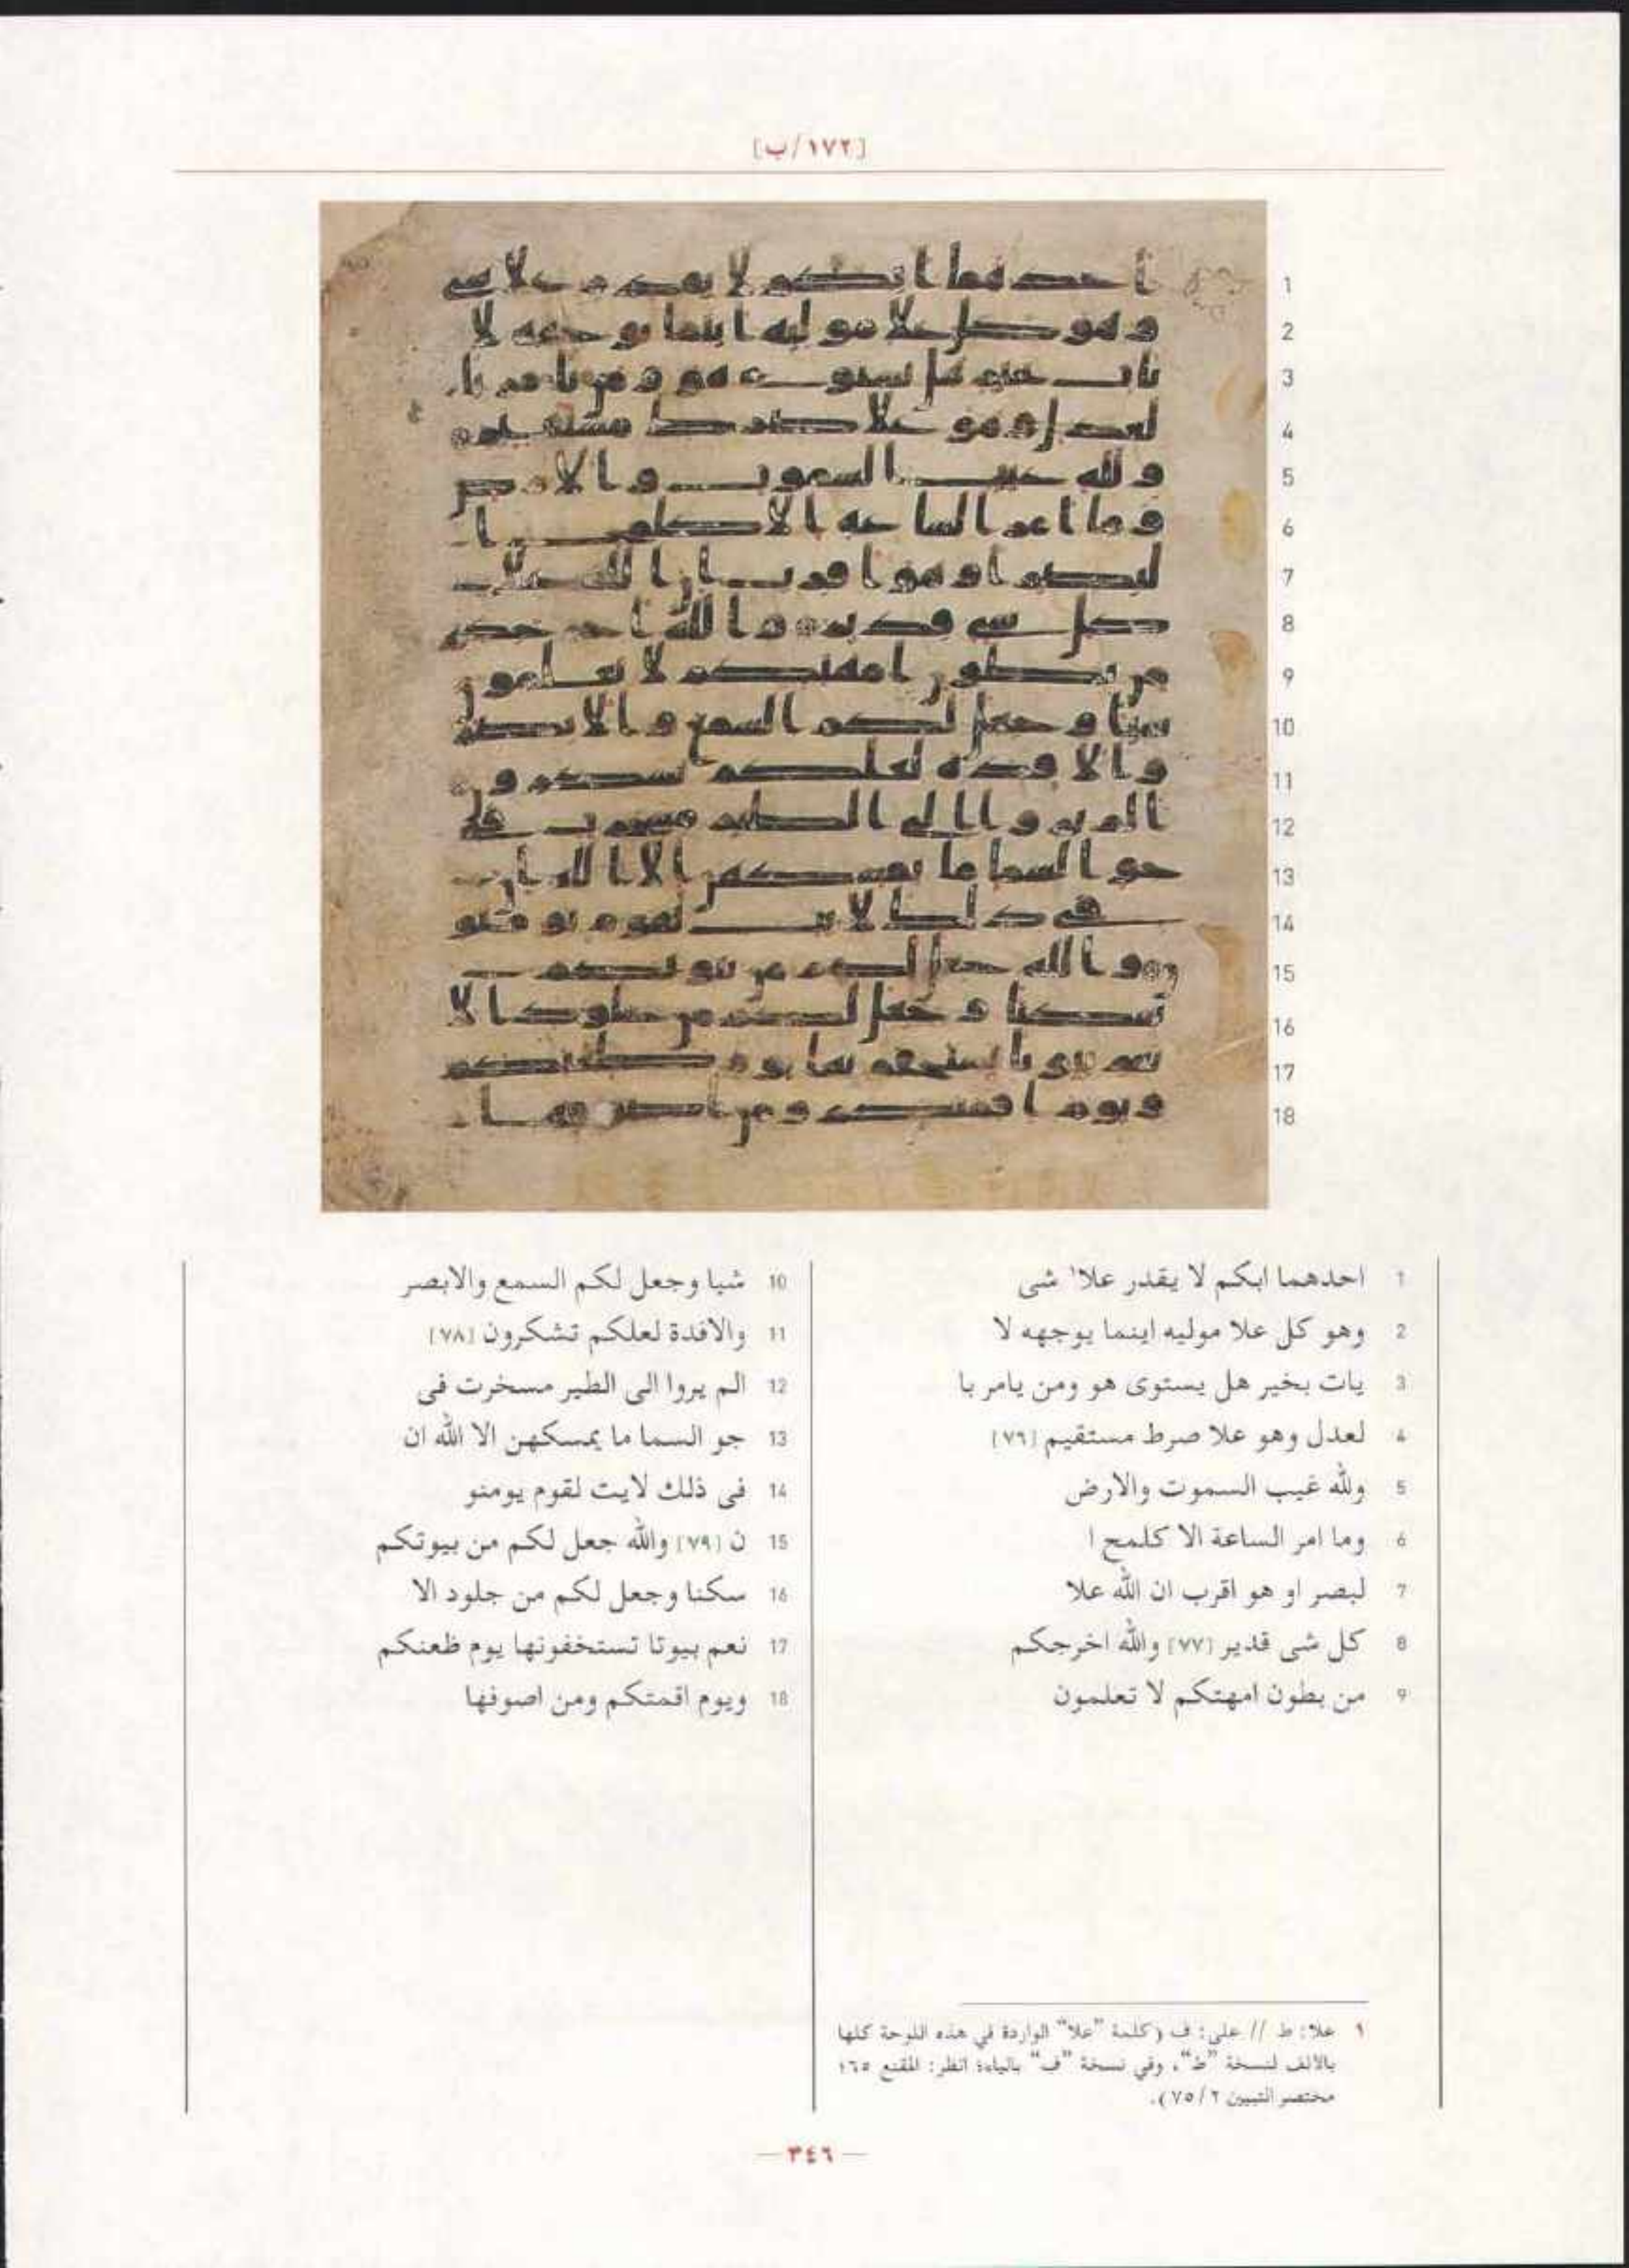 [١٧٢/ب]
1 احدهما ابكم لا يقدر علا١ شى
2 وهو كل علا موليه اينما يوجهه لا
3 يات بخير هل يستوى هو ومن يامر با
4 لعدل وهو علا صرط مستقيم [٧٦]
5 ولله غيب السموت والارض
6 وما امر الساعة الا كلمح ا
7 لبصر او هو اقرب ان الله علا
8 كل شى قدير [٧٧] والله اخرجكم
9 من بطون امهتكم لا تعلمون
10 شيا وجعل لكم السمع والابصر
11 والافدة لعلكم تشكرون [٧٨]
12 الم يروا الى الطير مسخرت فى
13 جو السما ما يمسكهن الا الله ان
14 فى ذلك لايت لقوم يومنو
15 ن [٧٩] والله جعل لكم من بيوتكم
16 سكنا وجعل لكم من جلود الا
17 نعم بيوتا تستخفونها يوم ظعنكم
18 ويوم اقمتكم ومن اصوفها
١ علا: ط // على: ف (كلمة "علا" الواردة في هذه اللوحة كلها
بالألف لنسخة "ط"، وفي نسخة "ف" بالياء؛ انظر: المقنع ٦٥؛
مختصر التبيين ٢/ ٧٥).
— ٣٤٦ —